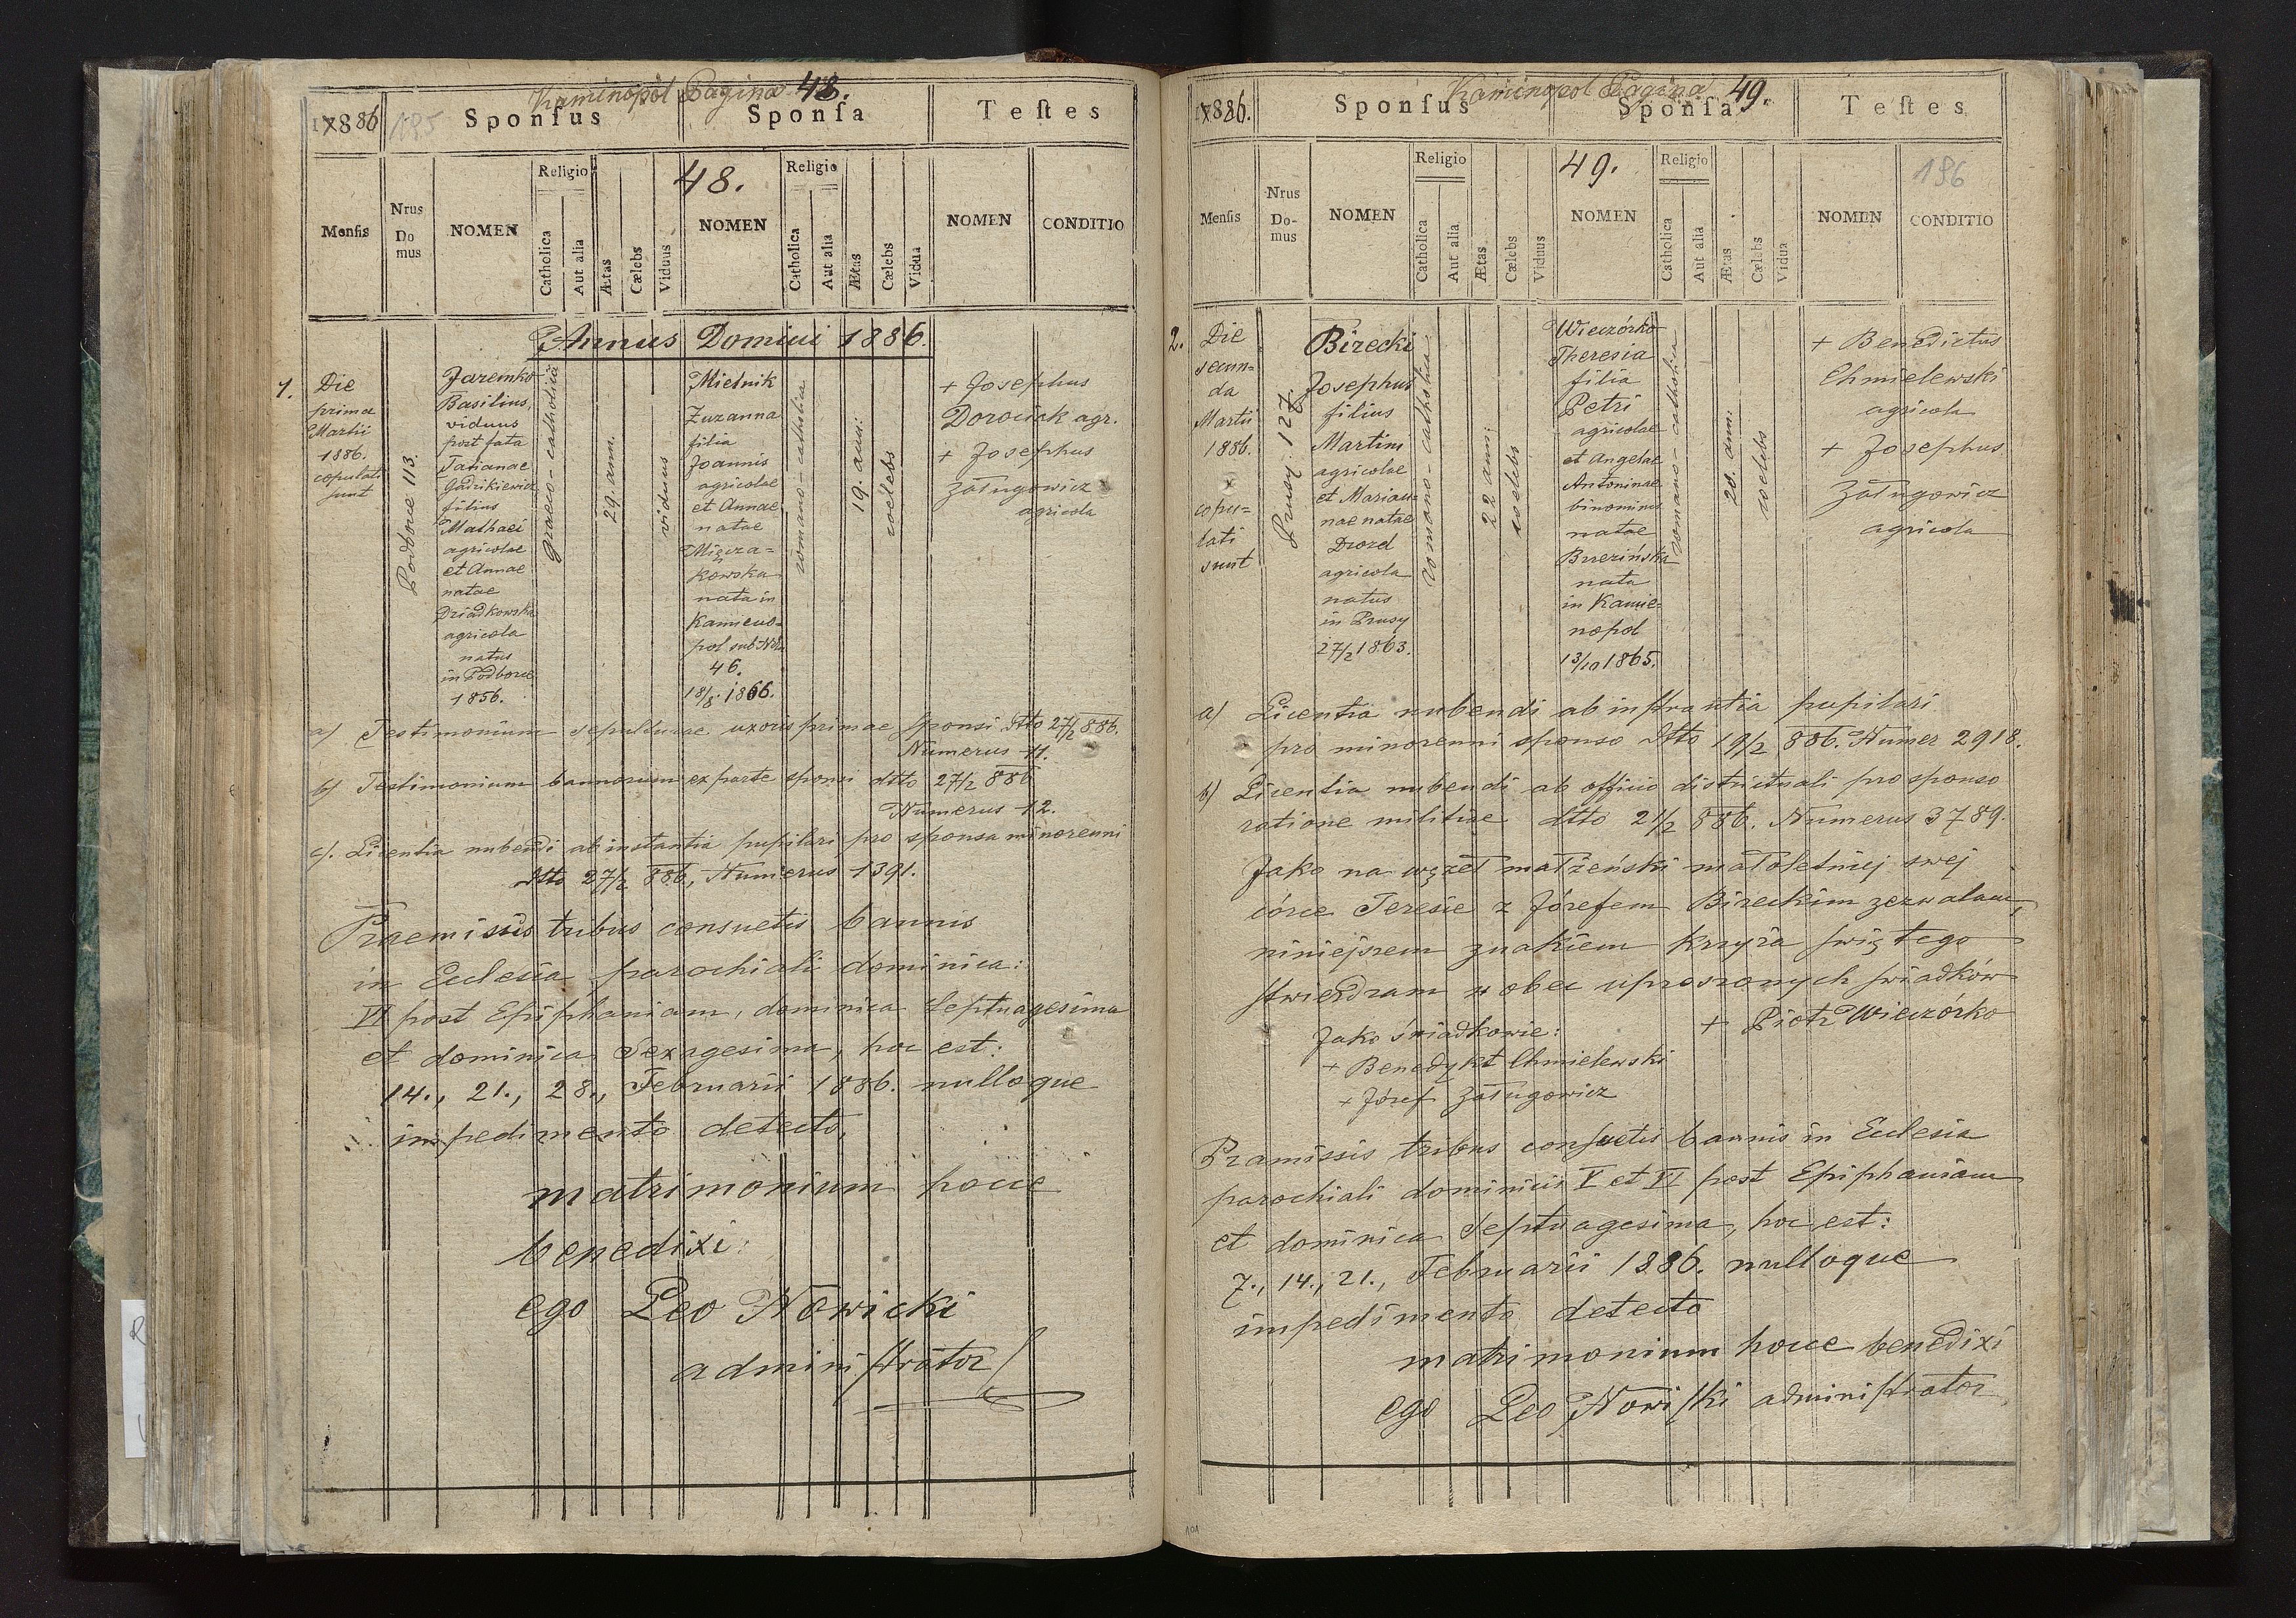 Kaminopol Pagina 48.
1886 185 Sponſus Sponſa Teſtes
Menſis
Nrus
Do
mus
NOMEN
Religio
Catholica
Aut alia
Ætas
Cælebs
Viduus
48.
NOMEN
Religio
Catholica
Aut alia
Ætas
Cælebs
Vidua
NOMEN
CONDITIO
Annus Domini 1886.
1.
Die
prima
Martii
1886.
copulati
sunt
Podborce 113.
Jaremko
Basilius,
viduus
post fata
Tatianae
Gadzikiewicz
filius
Mathaei
agricolae
et Annae
natae
Dziadkowska
agricola
natus
in Podborce
1856.
graeco-catholica
29. ann.
viduus
Mielnik
Zuzanna
filia
Joannis
agricolae
et Annae
natae
Mięcza=
kowska
nata in
Kamieno=
pol sub Nro
46.
18/8 1866.
romano-catholica
19. ann:
coelebs
+ Josephus
Dorociak agr.
+ Josephus
Załugowicz
agricola
a) Testimonium sepulturae uxoris primae sponsi dtto 27/2 886.
Numerus 11.
b) Testimonium bannorum ex parte sponsi dtto 27/2 886
Numerus 12.
c). Licentia nubendi ab instantia pupilari pro sponsa minorenni
dtto 27/2 886, Numerus 1391.
Praemissis tribus consuetis bannis
in Ecclesia parochiali dominica:
VI post Epiphaniam, dominica Septuagesima
et dominica Sexagesima, hoc est:
14., 21., 28., Februarii 1886. nulloque
impedimento detecto,
matrimonium hocce
benedixi:
ego Leo Nowicki
adminiſtrator
Kaminopol Pagina 49.
1886. Sponſus Sponſa Teſtes
Menſis
Nrus
Do-
mus
NOMEN
Religio
Catholica
Aut alia
Ætas
Cælebs
Viduus
49.
NOMEN
Religio
Catholica
Aut alia
Ætas
Cælebs
Vidua
NOMEN
186
CONDITIO
2.
Die
secun=
da
Martii
1886.
copu=
lati
sunt
Prusy. 127.
Birecki
Josephus
filius
Martini
agricolae
et Marian=
nae natae
Drozd
agricola
natus
in Prusy
27/2 1863.
romano-catholica
22 ann:
coelebs
Wieczórko
Theresia
filia
Petri
agricolae
et Angelae
Antoninae
binominis
natae
Brzezińska
nata
in Kamie=
nopol
13/10 1865.
romano-catholica
20. ann:
coelebs
+ Benedictus
Chmielewski
agricola
+ Josephus
Załugowicz
agricola
a) Licentia nubendi ab inſtantia pupilari
pro minorenni sponso dtto 19/2 886. Numer 2918.
b) Licentia nubendi ab officio districtuali pro sponso
ratione militiae dtto 21/2 886. Numerus 3789.
Jako na węzeł małżeński małoletniej swej
córce Teresie z Józefem Bireckim zezwalam,
niniejszem znakiem krzyża świętego
stwierdzam w obec uproszonych świadków
+ Piotr Wieczórko
Jako świadkowie:
+ Benedykt Chmielewski
+ Józef Załugowicz
Pramissis tribus conſuetis bannis in Ecclesia
parochiali dominicis V et VI post Epiphaniam
et dominica Septuagesima, hoc est:
7., 14., 21., Februarii 1886. nulloque
impedimento detecto
matrimonium hocce benedixi
ego Leo Nowiſki adminiſtrator
101